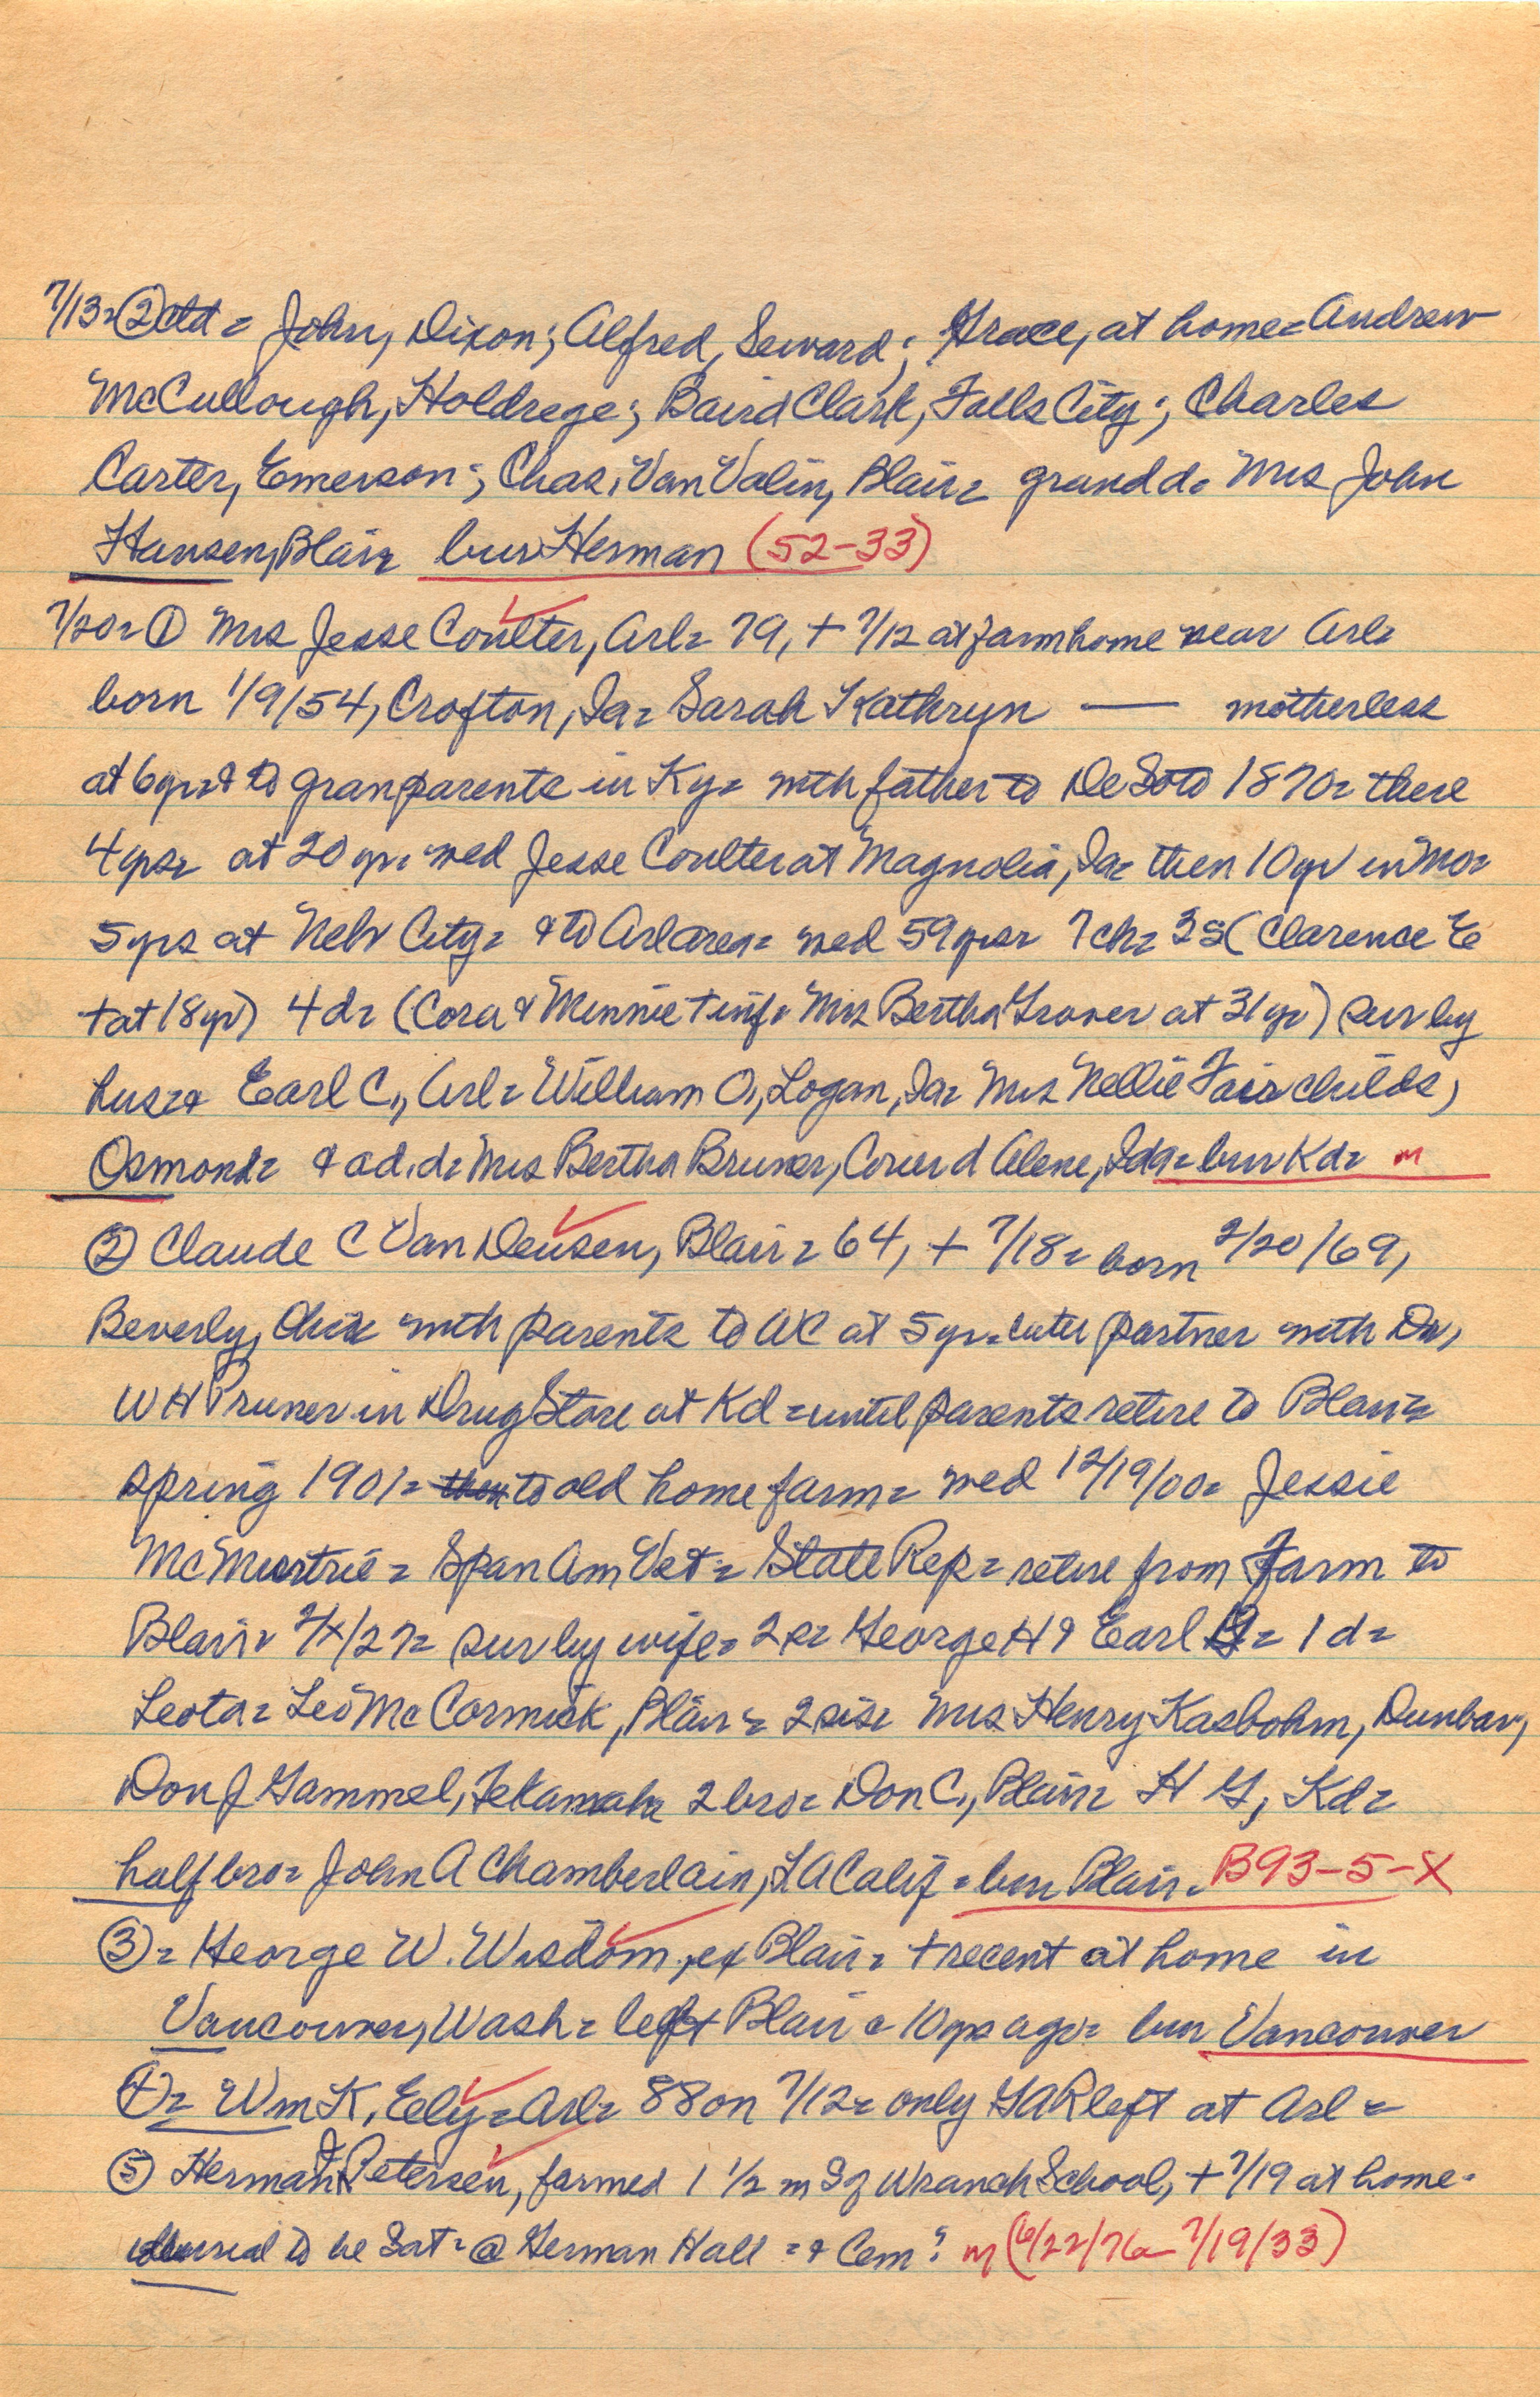 7/13= ② ctd = John, Dixon; Alfred, Seward; Grace, at home= Andrew
McCullough, Holdrege; Baird Clark, Falls City; Charles
Carter, Emerson; Chas. Van Valin, Blair= grand d= Mrs John
Hansen, Blair= bur Herman (52-33)
7/20= ① Mrs Jesse Coulter, Arl= 79, + 7/12 at farm home near Arl=
born 1/9/54, Crofton, Ia= Sarah Kathryn — motherless
at 6 yr= & to granparents in Ky= with father to De Soto 1870= there
4 yrs= at 20 yr. wed Jesse Coulter at Magnolia, Ia= then 10 yr in Mo=
5 yrs at Neb City= & to Arl area= wed 59 yrs= 7 ch= 3 s (Clarence E
+ at 18 yr) 4 d= (Cora & Minnie + inf. Mrs Bertha Graver at 31 yr) sur by
hus= & Earl C., Arl= William O., Logan, Ia= Mrs Nellie Fairchilds,
Osmond= & ad. d= Mrs Bertha Bruner, Coeur d Alene, Ida= bur Kd= m
② Claude C Van Deusen, Blair= 64, + 7/18= born 2/20/69,
Beverly, with parents to WC at 5 yr= later partner with Dr,
W H Pruner in Drug Store at Kd = until parents retire to Blair=
spring 1901= then to old home farm= wed 12/19/00= Jessie
McMurtrie= Span Am Vet= State Rep= retire from farm to
Blair= 2/x/27= sur by wife= 2 s= George H & Earl = 1 d=
Leota= Leo McCormick, Blair= 2 sis= Mrs Henry Kasbohm, Dunbar,
Don J Gammel, Tekamah= 2 bro= Don C., Blair= H G, Kd=
half bro= John A Chamberlain, LA Calif= bur Blair= B93-5-X
③= George W. Wisdom, ex Blair= + recent at home in
Vancouver, Wash= left Blair c 10 yrs ago= bur Vancouver
④= Wm K. Eely= Arl= 88 on 7/12= only GAR left at Arl=
⑤ Herman J Petersen, farmed 1 1/2 m S of Wranch School, + 7/19 at home=
to be Sat= @ Herman Hall = & Cem? m (6/22/76- 7/19/33)